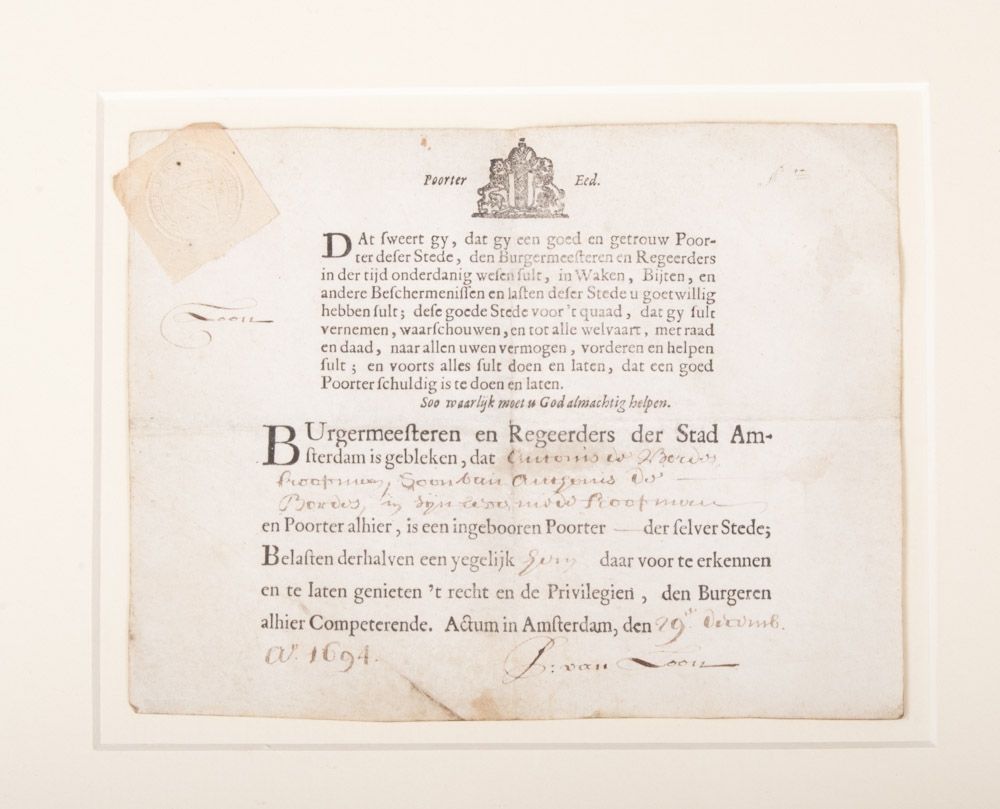 Poorter Eed.
DAt ſweert gy, dat gy een goed en getrouw Poor-
ter deſer Stede, den Burgermeeſteren en Regeerders
in der tijd onderdanig weſen ſult, in Waken, Bijten, en
andere Beſchermeniſſen en laſten deſer Stede u goetwillig
hebben ſult; deſe goede Stede voor 't quaad, dat gy ſult
vernemen, waarſchouwen, en tot alle welvaart, met raad
en daad, naar allen uwen vermogen, vorderen en helpen
ſult; en voorts alles ſult doen en laten, dat een goed
Poorter ſchuldig is te doen en laten.
Soo waarlijk moet u God almachtig helpen.
Loon
BUrgermeeſteren en Regeerders der Stad Am-
ſterdam is gebleken, dat Antonis de Bordes
koopman, Soon van Anthonis de
Bordes, in sijn leven mede koopman
en Poorter alhier, is een ingebooren Poorter der ſelver Stede;
Belaſten derhalven een yegelijk daar voor te erkennen
en te laten genieten 't recht en de Privilegien, den Burgeren
alhier Competerende. Actum in Amſterdam, den 29en Decemb.
Ao. 1694.
P: van Loon